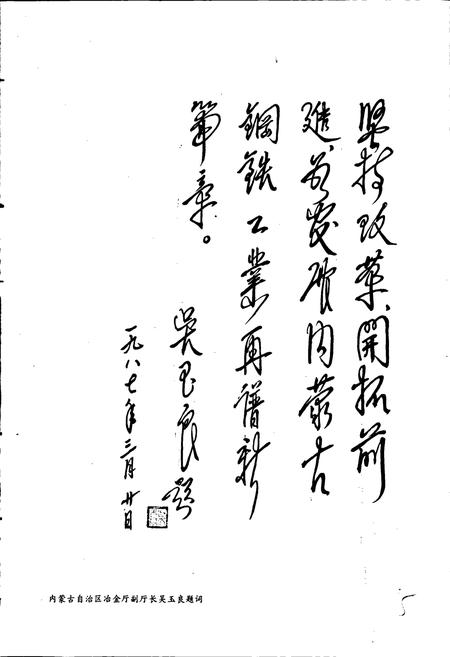 坚持改革、開拓前
進,为发展内蒙古
鋼鉄工業再譜新
篇章。
吴玉良題
一九八七年三月廿日
内蒙古自治区冶金厅副厅长吴玉良题词
5